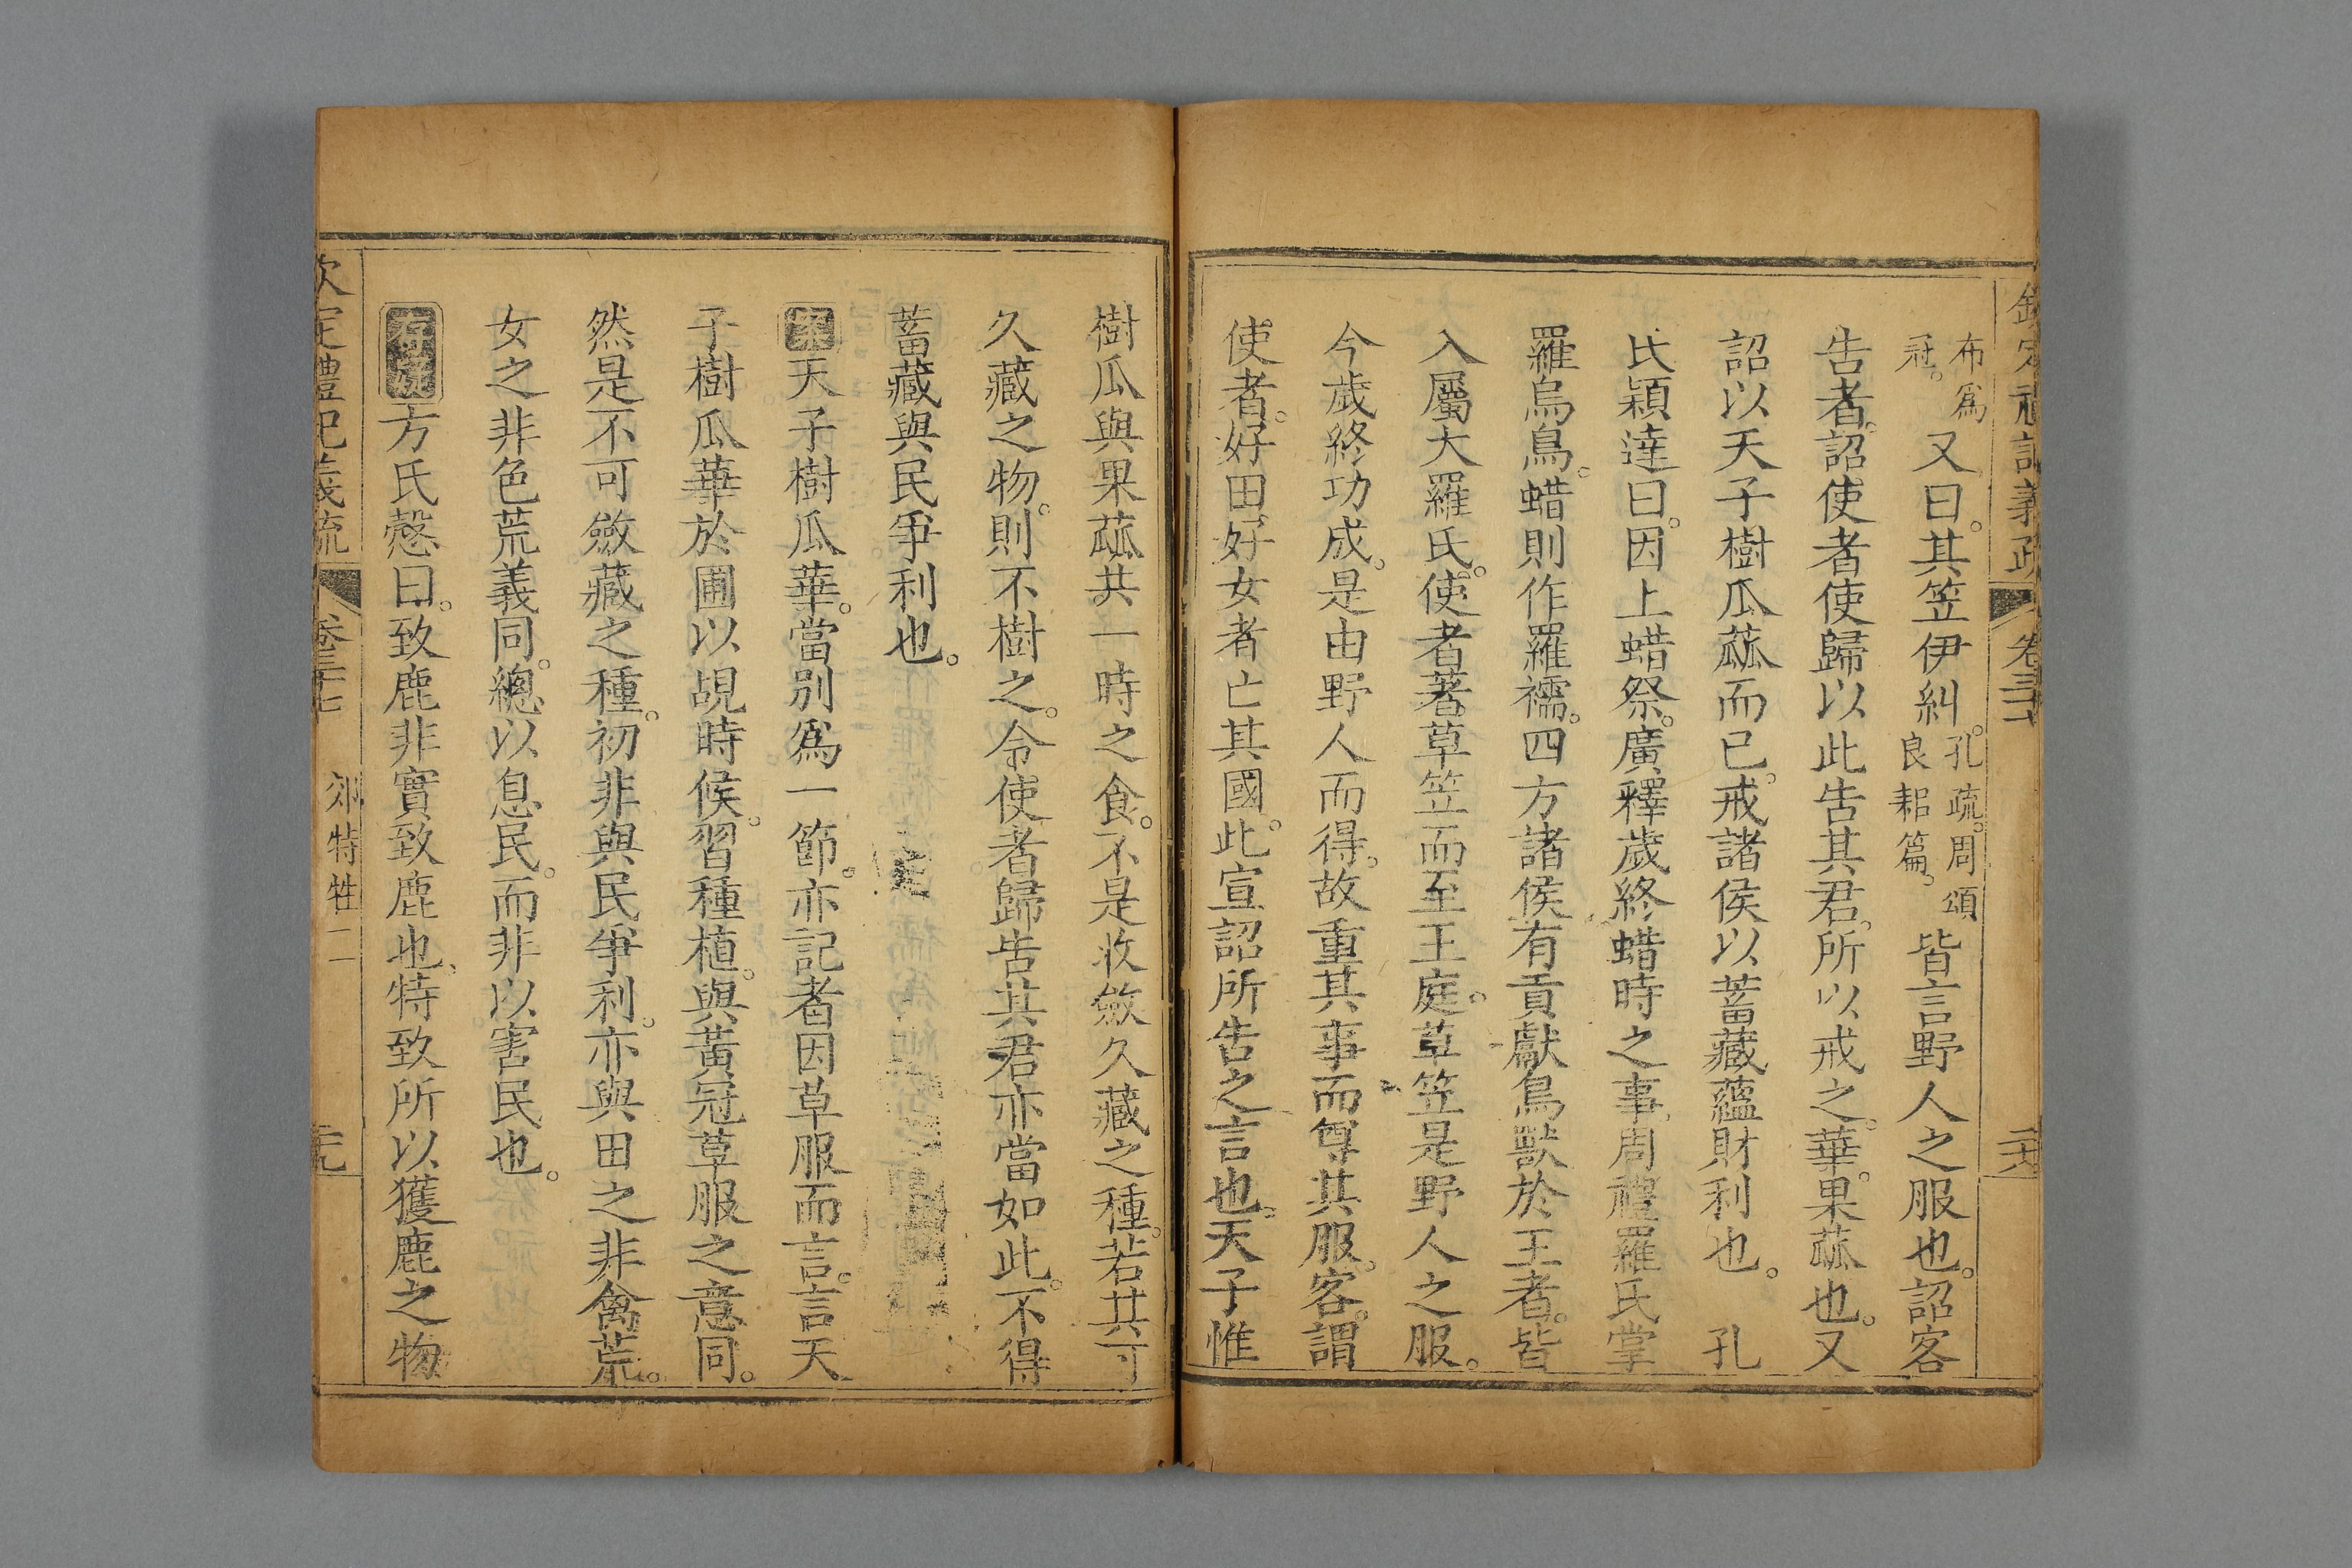 欽定禮記義疏 卷三十七 二六
布爲
冠。又曰。其笠伊糾。孔疏。周頌
良耜篇。皆言野人之服也。詔客
告者。詔使者使歸以此告其君。所以戒之。華。果蓏也。又
詔以天子樹瓜蓏而已。戒諸侯以蓄藏蘊財利也。 孔
氏穎達曰。因上蜡祭。廣釋歲終蜡時之事。周禮羅氏掌
羅烏鳥。蜡則作羅襦。四方諸侯有貢獻鳥獸於王者。皆
入屬大羅氏。使者著草笠而至王庭。草笠是野人之服。
今歲終功成。是由野人而得。故重其事而尊其服。客。謂
使者。好田。好女者亡其國。此宣詔所告之言也。天子惟
樹瓜與果蓏共一時之食。不是收斂久藏之種。若其可
久藏之物。則不樹之。令使者歸告其君亦當如此。不得
蓄藏與民爭利也。
案天子樹瓜華。當別爲一節。亦記者因草服而言。言天
子樹瓜華於圃以覘時候。習種植。與黃冠草服之意同。
然是不可斂藏之種。初非與民爭利。亦與田之非禽荒。
女之非色荒義同。總以息民。而非以害民也。
存疑方氏慤曰。致鹿非實致鹿也。特致所以獲鹿之物
欽定禮記義疏 卷三十七 郊特牲二 二九